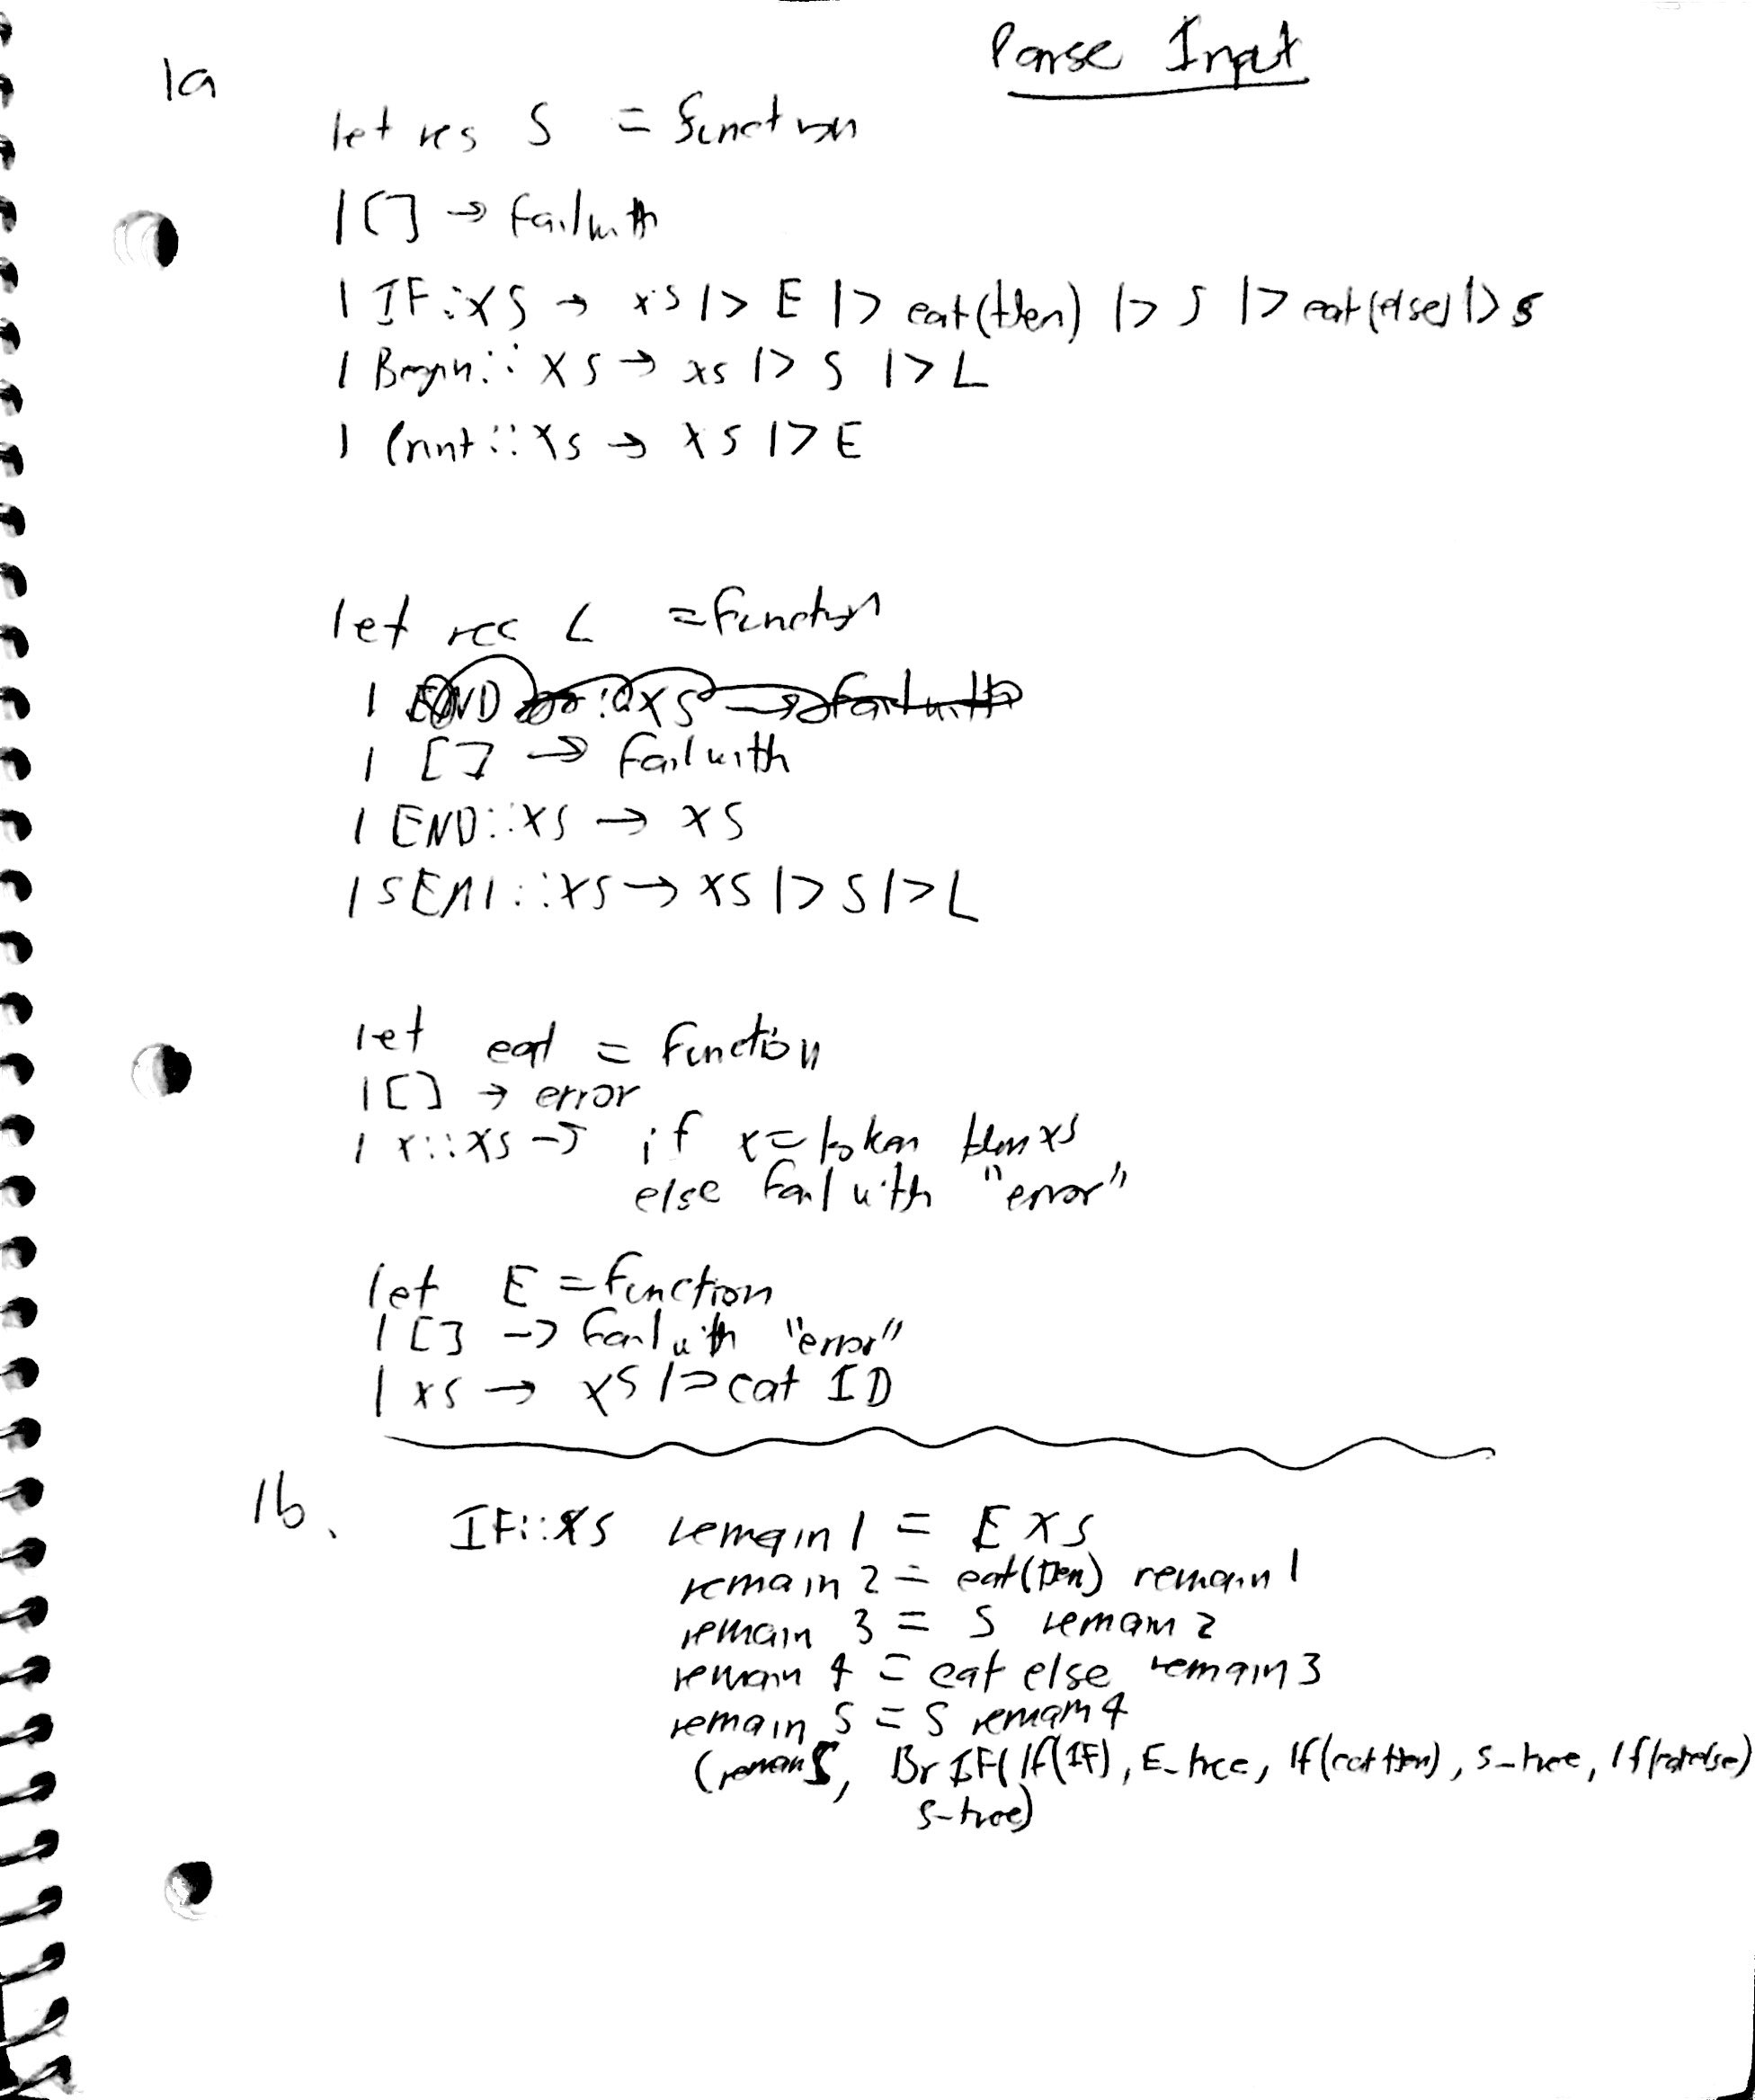 Parse Input
1a
let rec S = function
| [] → failwith
| IF::XS → xs |> E |> eat(then) |> S |> eat(else) |> S
| Begin::XS → xs |> S |> L
| Print::XS → XS |> E
let rec L = function
| [] → failwith
| END::XS → XS
| SEMI::XS → XS |> S |> L
let eat = function
| [] → error
| x::XS → if x = token then xs
else failwith "error"
let E = function
| [] → failwith "error"
| xs → XS |> eat ID
1b.
IF::XS remain 1 = E XS
remain 2 = eat(then) remain 1
remain 3 = S remain 2
remain 4 = eat else remain 3
remain 5 = S remain 4
(remain5, Br IF(lf(IF), E_tree, lf(eat then), S_tree, lf(eat else)
S-tree)